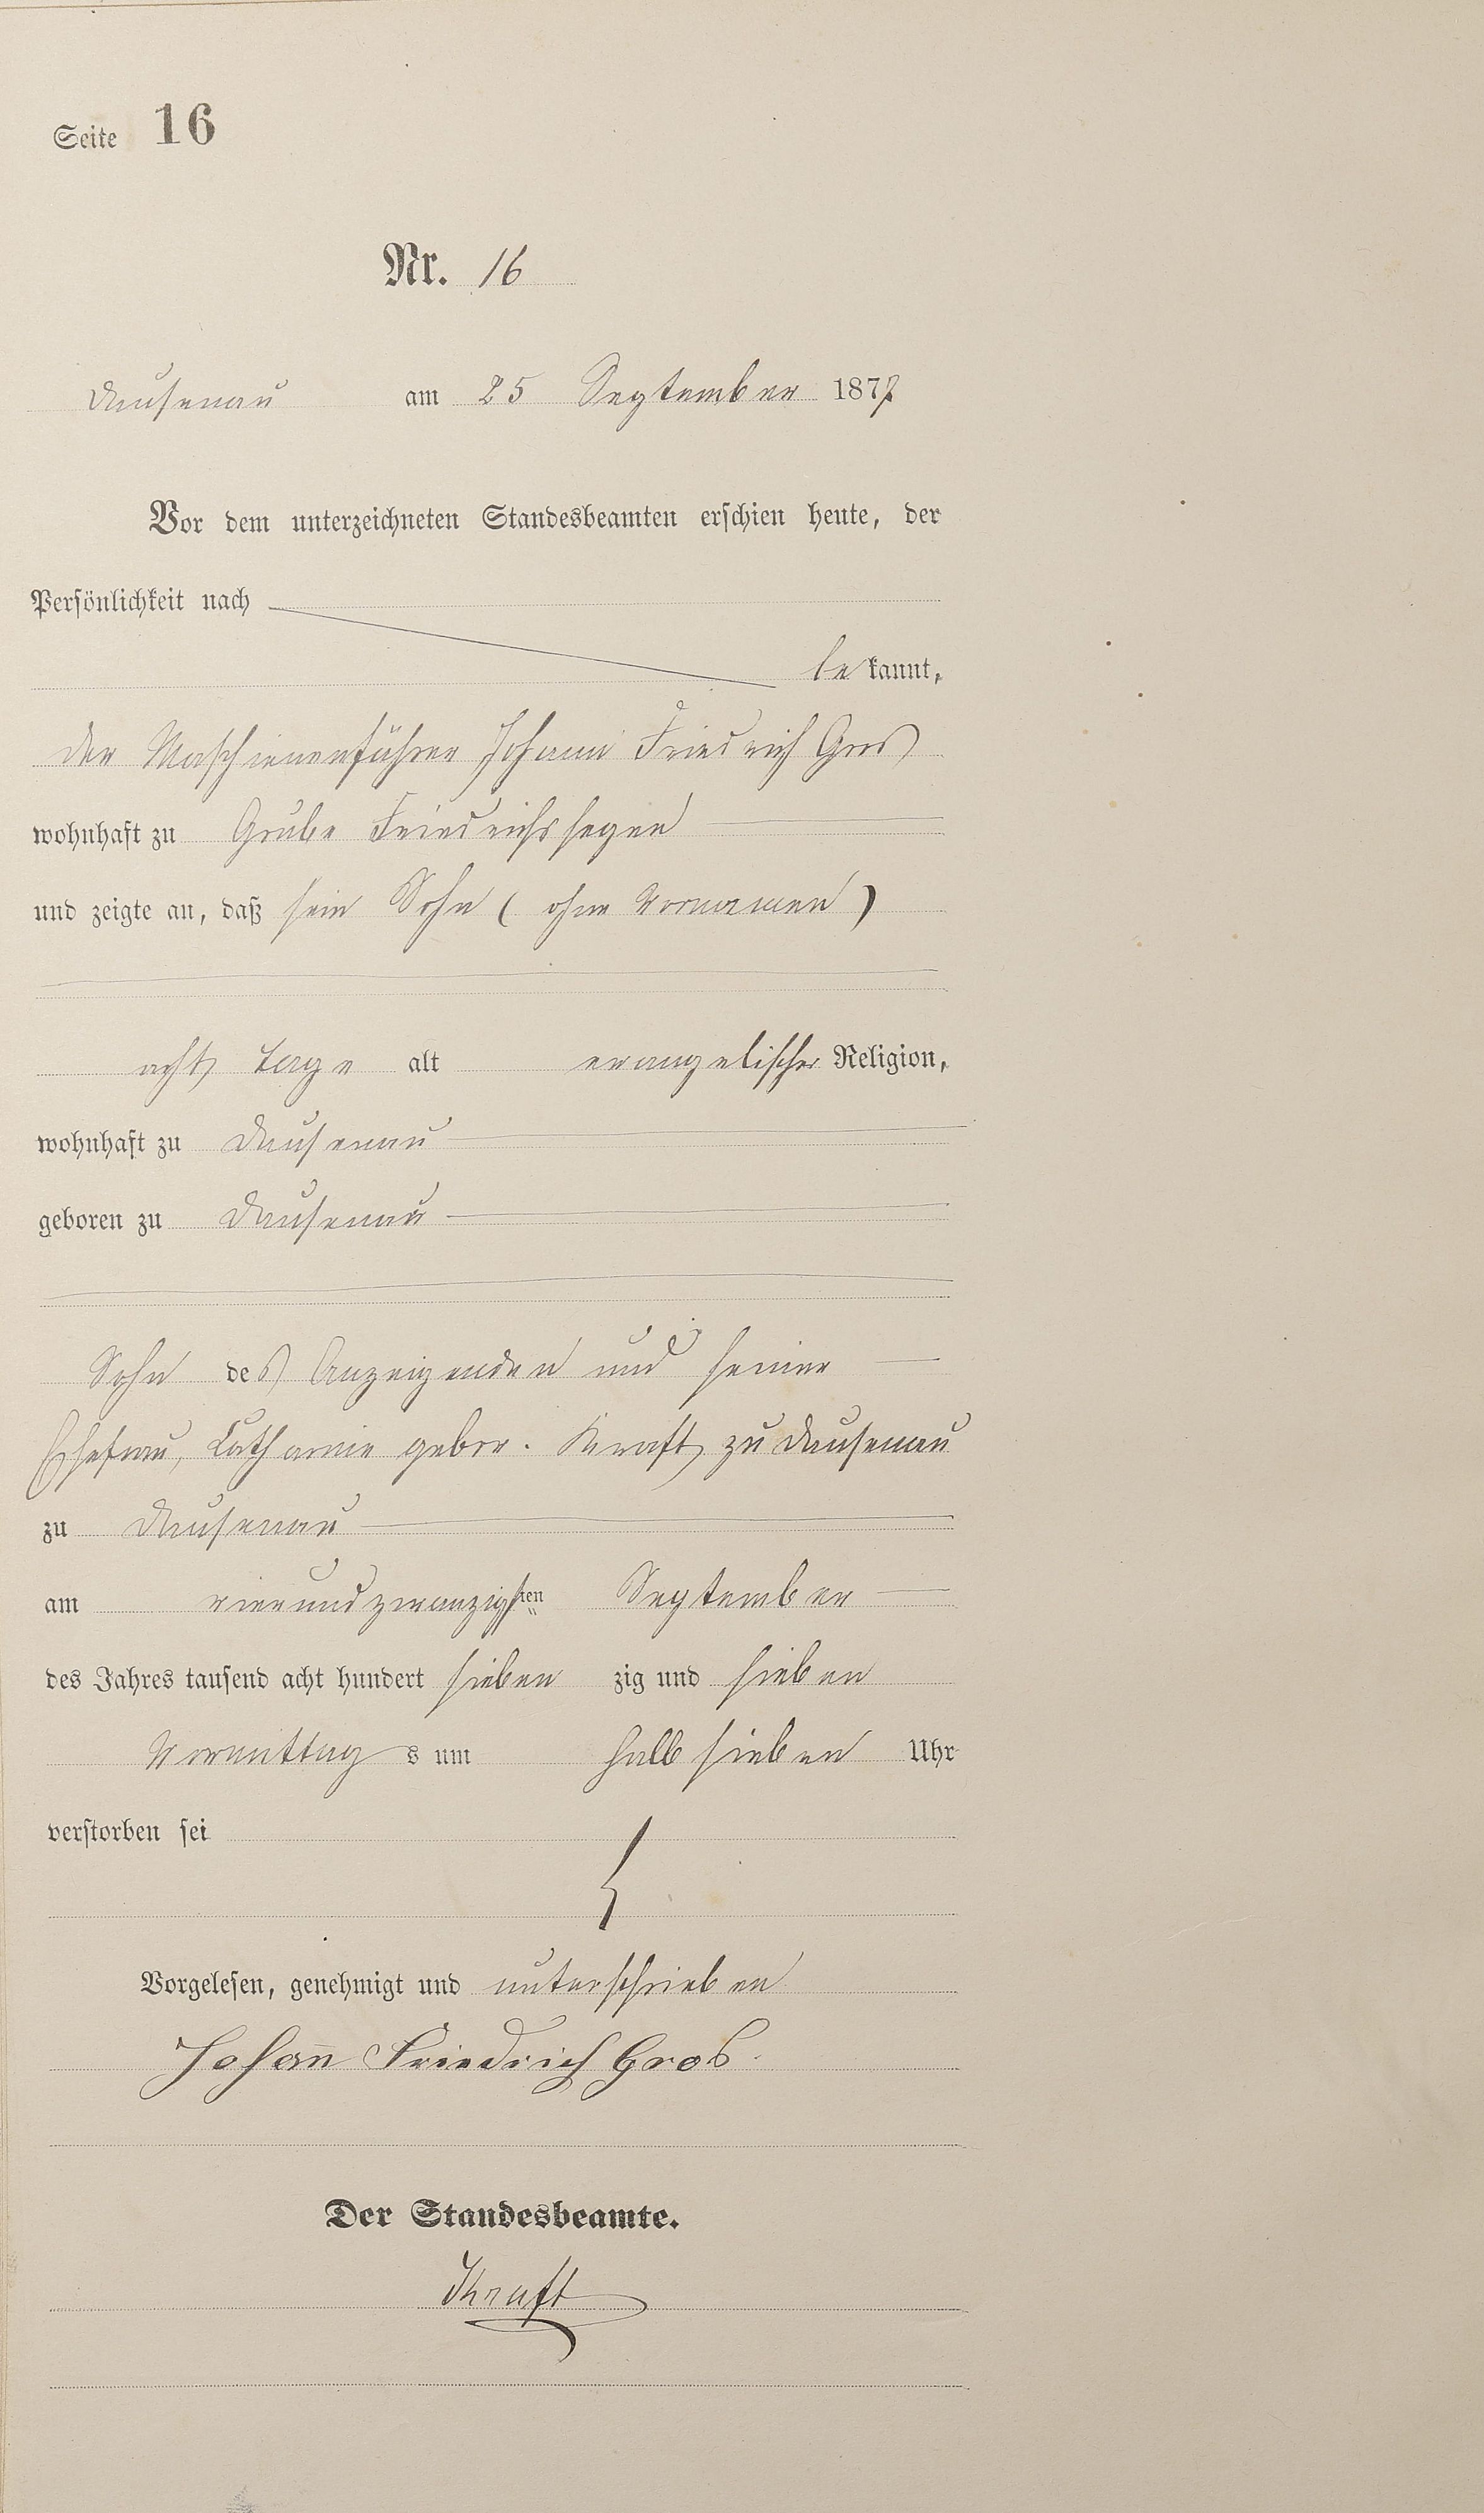 Seite 16
Nr. 16
Dausenau am 25 September 1877
Vor dem unterzeichneten Standesbeamten erschien heute, der
Persönlichkeit nach
bekannt,
der Maschienenführer Johann Friedrich Gros
wohnhaft zu Grube Friedrichssegen
und zeigte an, daß sein Sohn (ohne Vornamen)
acht Tage alt evangelischer Religion,
wohnhaft zu Dausenau
geboren zu Dausenau
Sohn des Anzeigenden und seiner
Ehefrau, Catharine gebor. Kraft zu Dausenau
zu Dausenau
am vierundzwanzigsten September
des Jahres tausend acht hundert siebenzig und sieben
Vormittags um halb sieben Uhr
verstorben sei
Vorgelesen, genehmigt und unterschrieben
Johann Friedrich Gros.
Der Standesbeamte.
Kraft